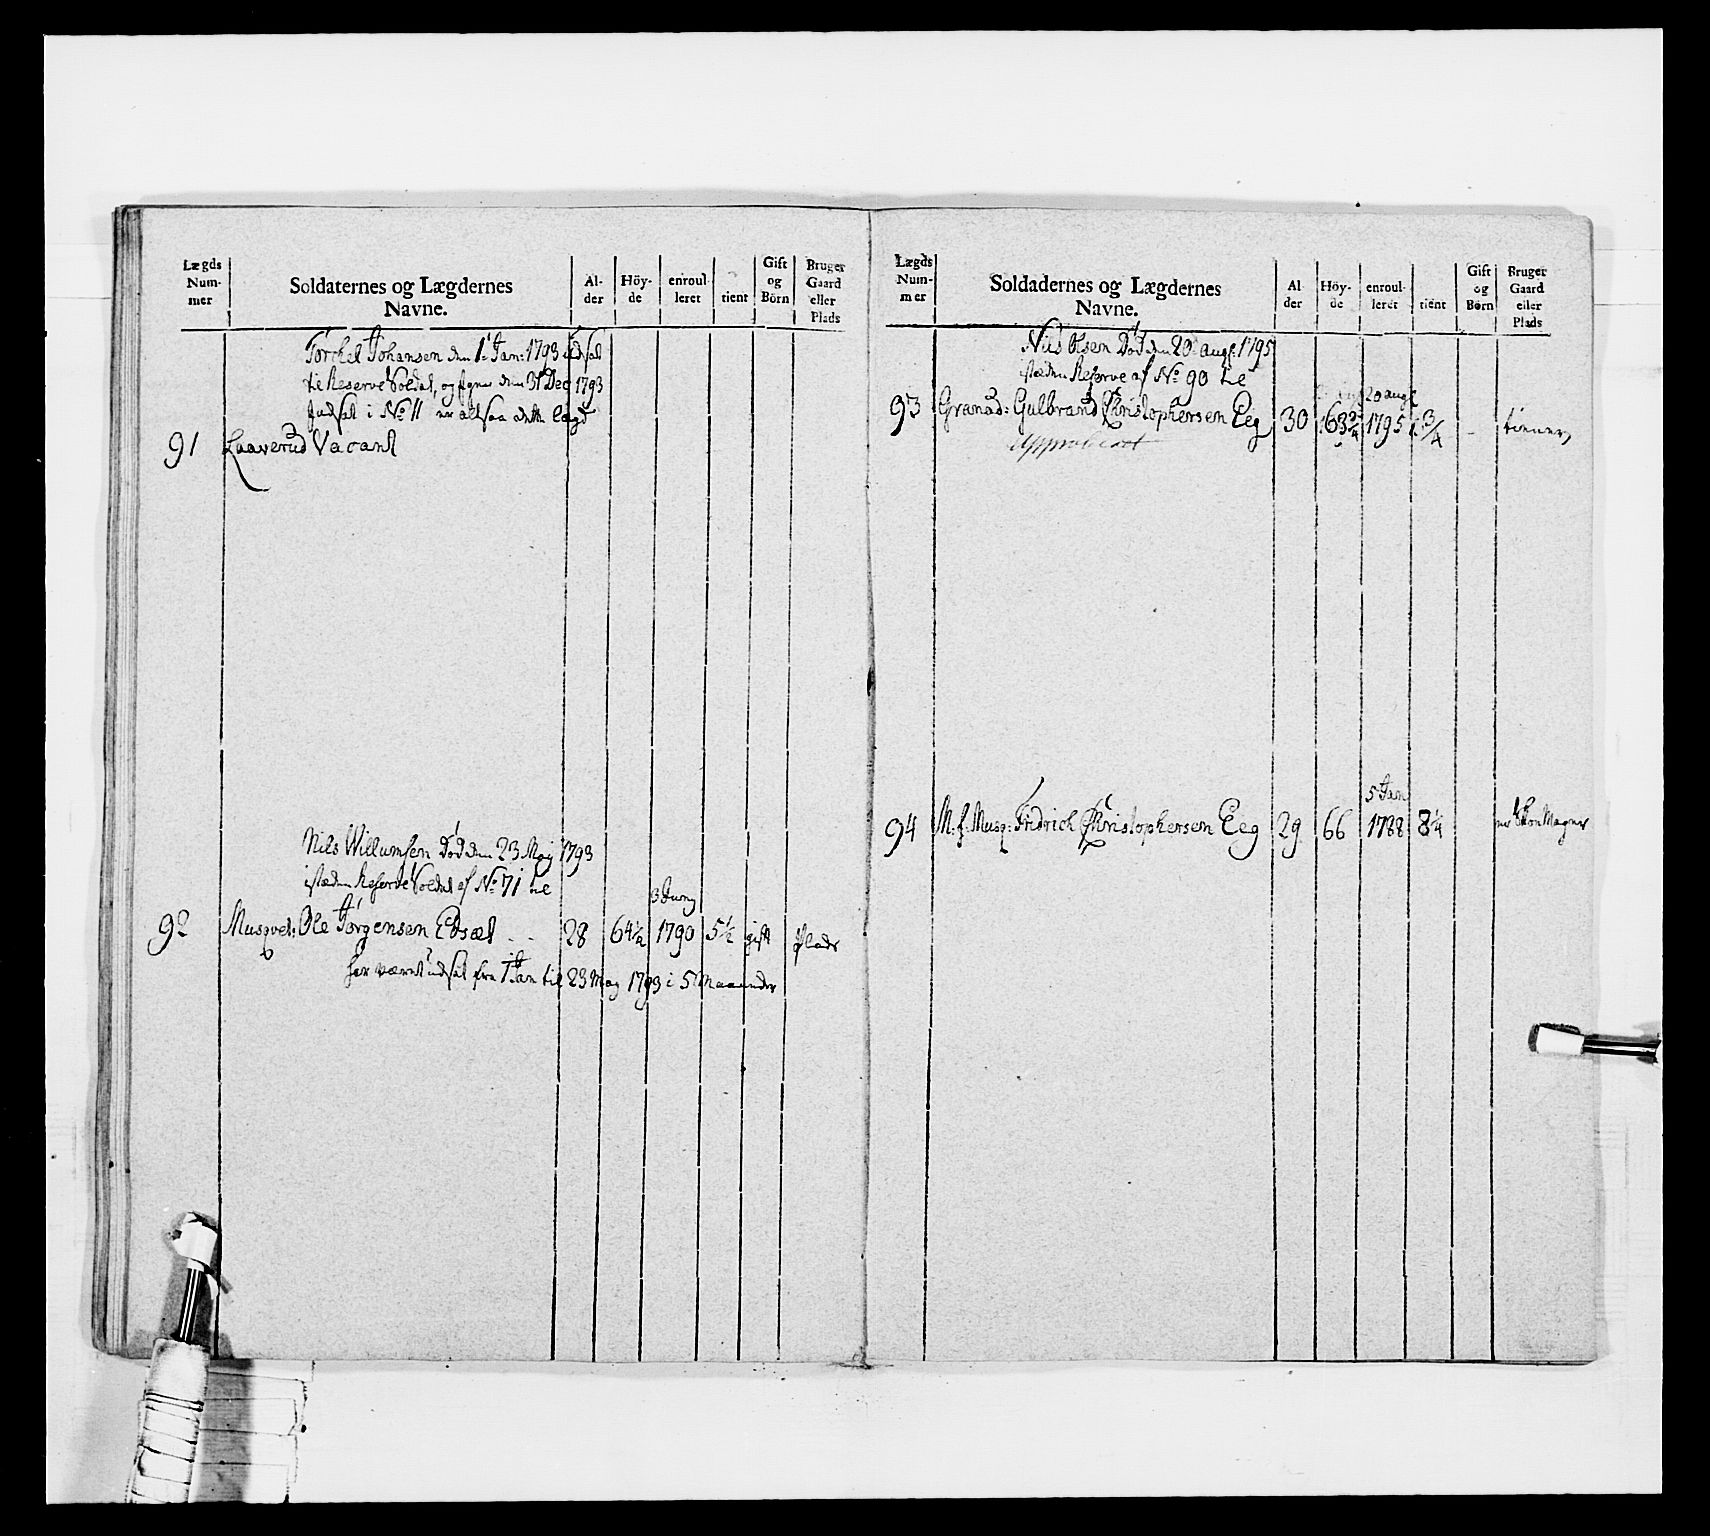 Lægds Num- mer
Soldaternes og Lægdernes Navne.
Al- der
Höy- de
enroul- leret
tient
Gift og Börn
Bruger Gaard eller Plads
Torchel Johansen den 1. Jan: 1793 udsat
til Reserve Soldat, og igien den 31 Dec 1793
Indsat i No 11 er altsaa dette lægd
91 Laaverud Vacant
Nils Willumsen Död den 23 May 1793
isteden Reserve Soldat af No 71
3 Juny
92 Musqvet: Ole Jörgensen Edsæt 28 64½ 1790 5½ gift Plads
har været udsat fra 1 Jan til 23 May 1793 i 5 Maaneder
Lægds Num- mer
Soldadernes og Lægdernes Navne.
Al der
Höy- de
enroul- leret
tient
Gift og Börn
Bruger Gaard eller Plads
Nils Olsen Död den 20 augt: 1795
isteden Reserve af No 90
20 augt
93 Granad: Gulbrand Christophersen Eeg 30 63¾ 1795 ¾ - tienner
Approberet
5 Jan
94 M. f. Musq: Fridrich Christophersen Eeg 29 66 1788 8¼